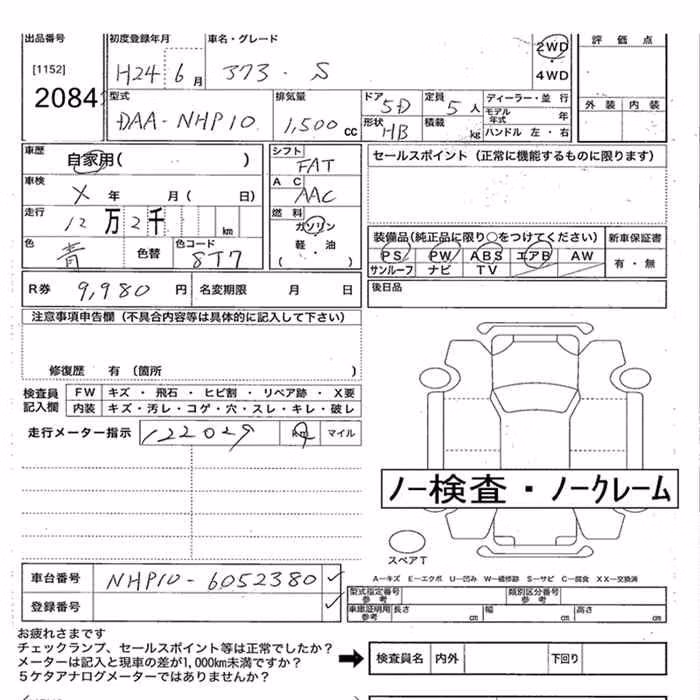 出品番号 初度登録年月 車名・グレード 2WD 評価点
[1152] H24 6月 373・S 4WD
2084 型式 排気量 ドア 5D 定員 5人 ディーラー・並行 外装 内装
DAA-NHP10 1,500cc 形状 HB 積載 kg モデル年式 年
ハンドル 左・右
車歴 自家用( ) シフト FAT セールスポイント(正常に機能するものに限ります)
車検 X年 月( 日) AC AAC
走行 12万2千 km 燃料 ガソリン
色 青 色替 色コード 8T7 軽・油 ( )
装備品(純正品に限り○をつけてください) 新車保証書
PS PW ABS エアB AW 有・無
サンルーフ ナビ TV
R券 9,980円 名変期限 月 日 後日品
注意事項申告欄(不具合内容等は具体的に記入して下さい)
修復歴 有(箇所 )
検査員記入欄 FW キズ・飛石・ヒビ割・リペア跡・X要
内装 キズ・汚レ・コゲ・穴・スレ・キレ・破レ
走行メーター指示 122029 Km マイル
ノー検査・ノークレーム
スペアT
A-キズ E-エクボ U-凹み W-補修跡 S-サビ C-腐食 XX-交換済
車台番号 NHP10-6052380 型式指定番号 参考 類別区分番号 参考
登録番号 車庫証明用 参考 長さ cm 幅 cm 高さ cm
お疲れさまです
チェックランプ、セールスポイント等は正常でしたか?
メーターは記入と現車の差が1,000km未満ですか? 検査員名 内外 下回り
5ケタアナログメーターではありませんか?